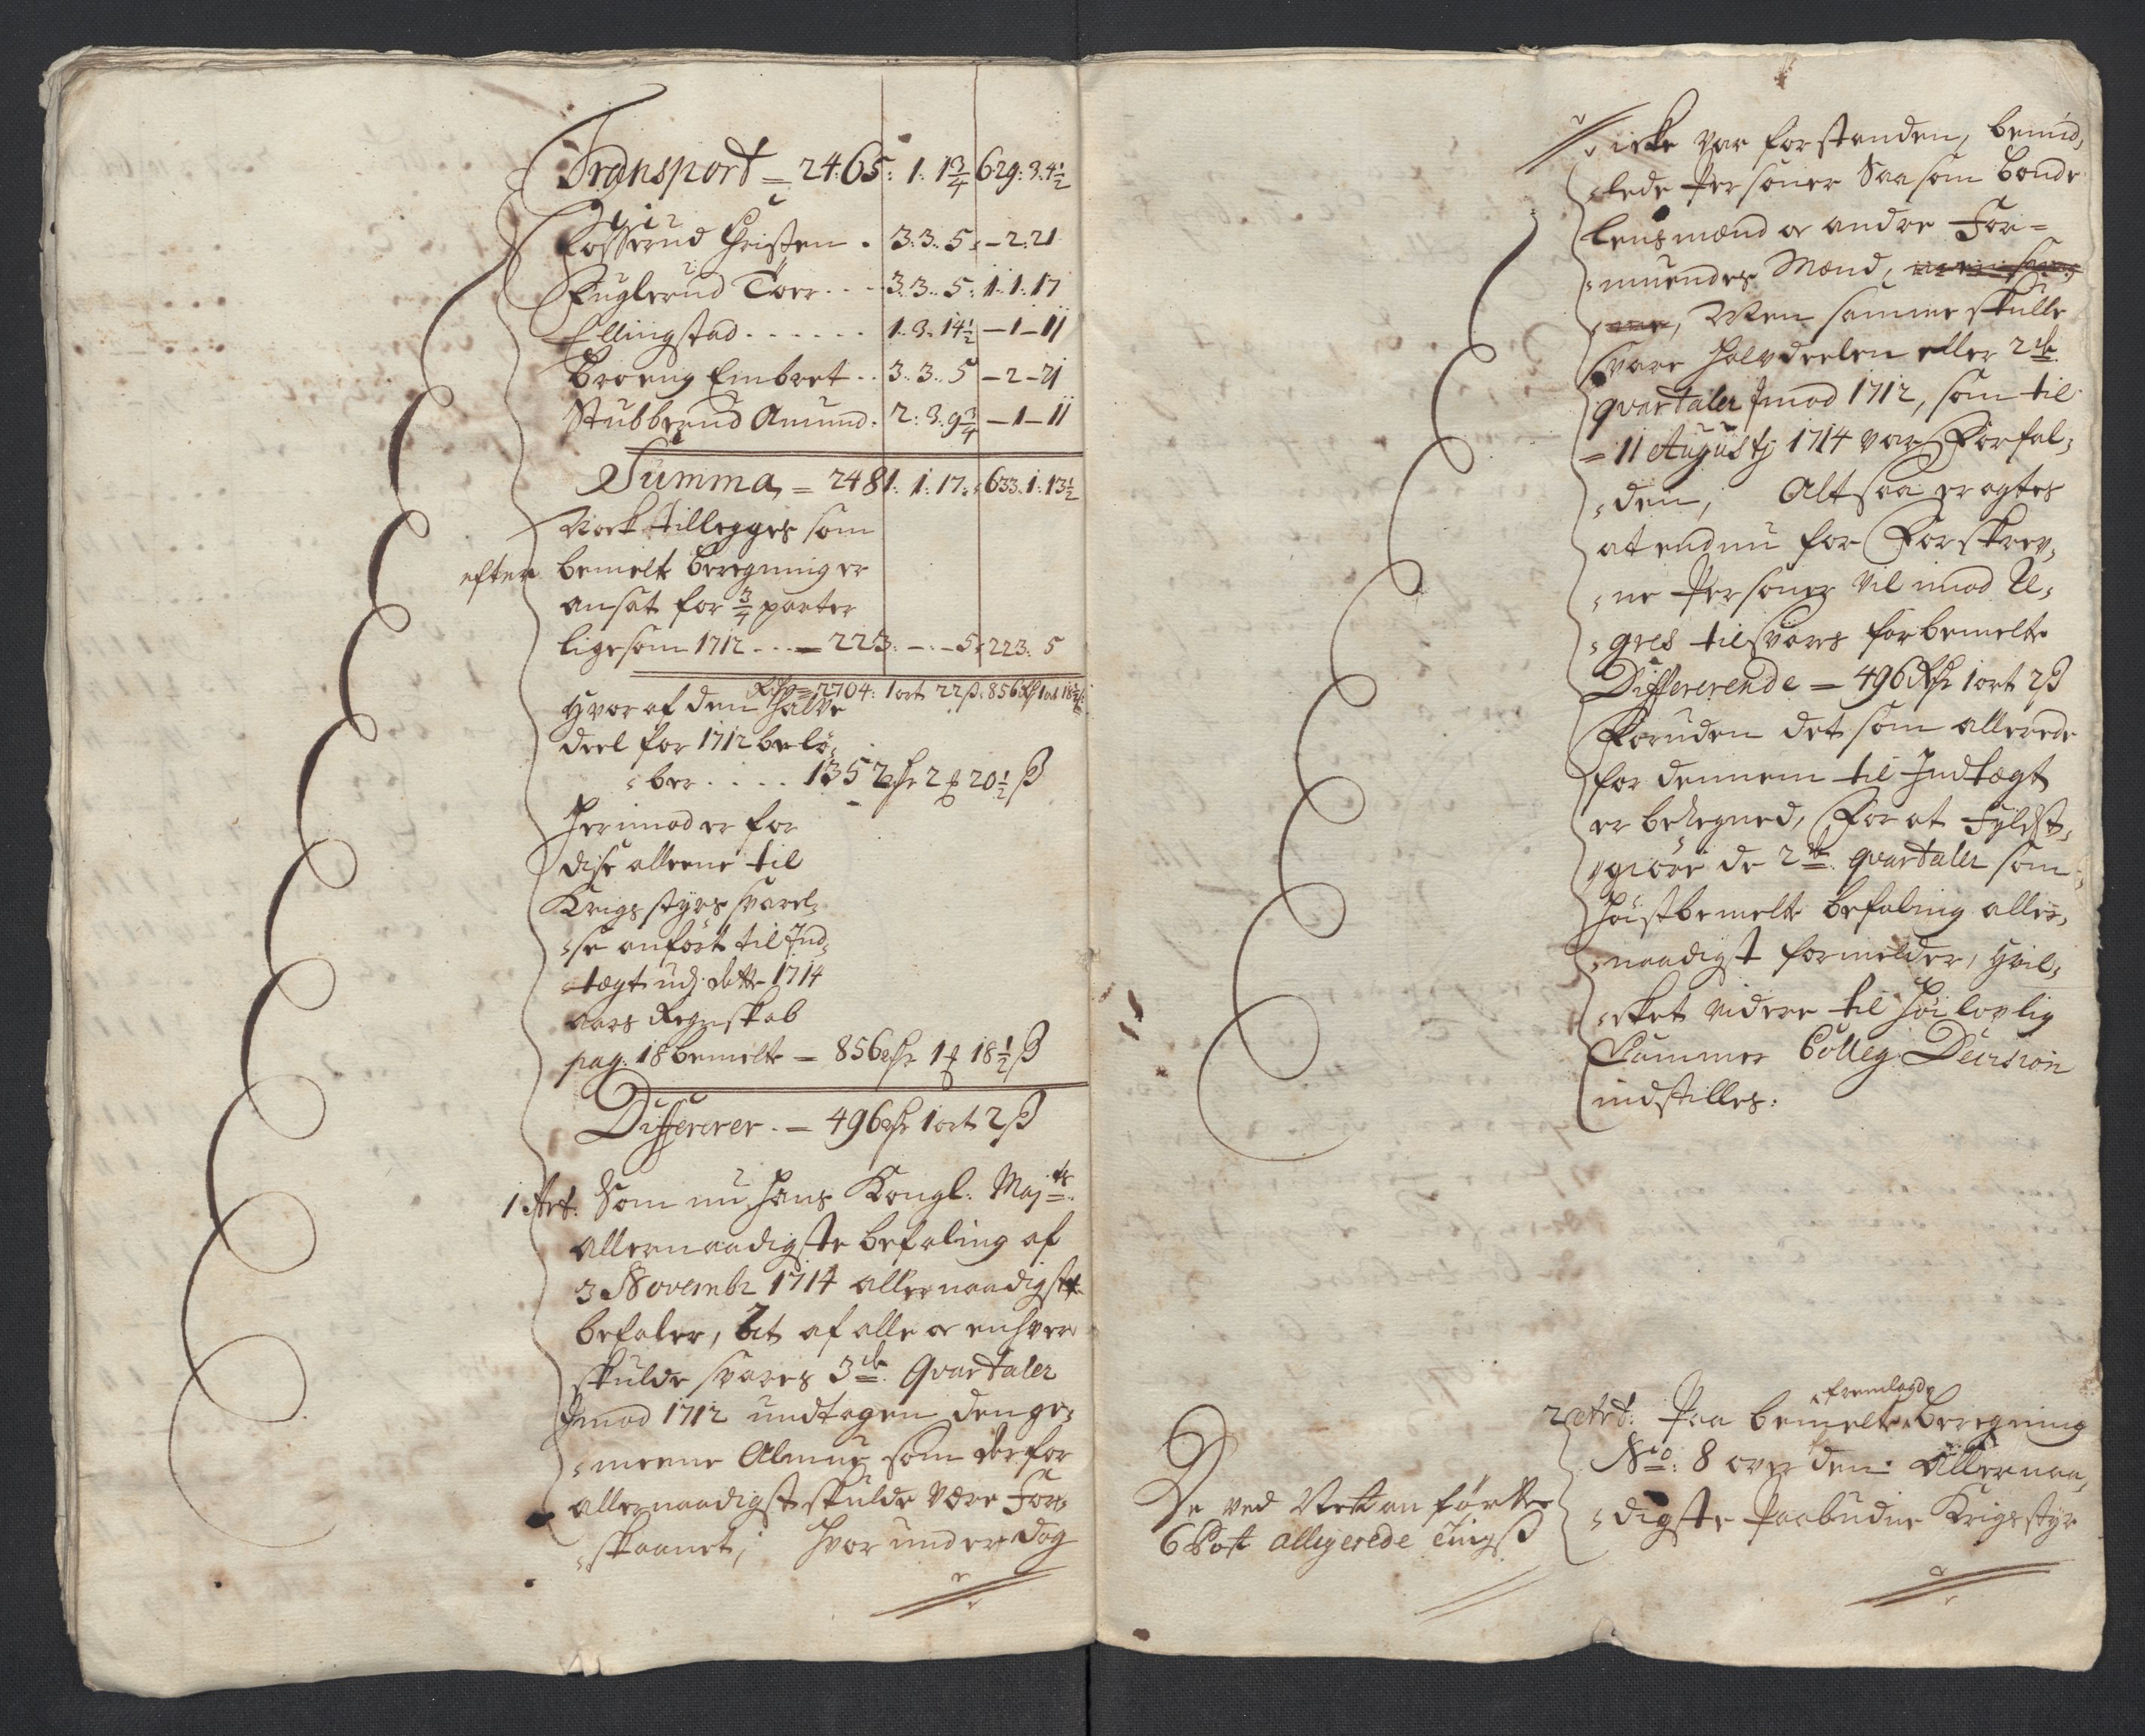 Transport = 2465: 1. 1 3/4 629: 3. 4 1/2
Fosserud Christen . 3: 3. 5. – 2: 21
Fuglerud Toer . . . 3. 3. 5: 1. 1: 17
Ellingstad . . . . . . 1. 3. 14 1/2 – 1 – 11
Broeng Embret . . 3. 3. 5 – 2 – 21
Stubberud Amund . 2: 3. 9 3/4 – 1 – 11
Summa = 2481. 1. 17: 633. 1. 13 1/2
Nock tillegges som
efter bemelte beregning er
ansat for 3/4 parter
ligesom 1712 . . . = 223. – . – 5: 223. 5
= 2704: 1 ort 22 ß. 856
Hvor af den halve
deel for 1712 belö-
ber . . . . 1352 2 20 1/2 ß
Herimod er for
disse alleene til
Krigsstyrs svarel-
se anfört til Ind-
tægt udj dette 1714
aars Regnskab
pag: 18 bemelte = 856 1 18 1/2 ß
Differerer . = 496 1 ort 2 ß
1 Art. Som nu Hans Kongl. Maj:ts
allernaadigste befaling af
3 Novembr 1714 allernaadigst
befaler, at af alle oc enhver
skulde svares 3de Qvartaler
Jmod 1712 undtagen den ge-
meene Almue som derfor
allernaadigst skulde være For-
skaanet, Hvor under dog
icke var forstanden, bemid-
lede Personer Saasom Bonde
Lensmænd oc andre For-
muendes Mænd,
, Men samme skulle
svare halvdeelen eller 2de
qvartaler Jmod 1712, som til
11 Augustj 1714 var Forfal-
den, Altsaa eragtes
at endnu for Forskrev-
ne Personer vil imod
tilsvares forbemelte
Differerende = 496 1 ort 2 ß
Foruden det som allerede
for dennem til Indtægt
er beregned, For at Fyldest-
giöre de 2de qvartaler som
Höistbemelte befaling aller-
naadigst formelder, Hvil-
cket videre til Höilovlig
Cammer Colleg: Decision
indstilles.
De ved Nest anförtte
6 Post allegerede tings
fremlagde
2 Art: Paa bemelte beregning
No: 8 over den Allernaa-
digste Paabudne Krigsstyr